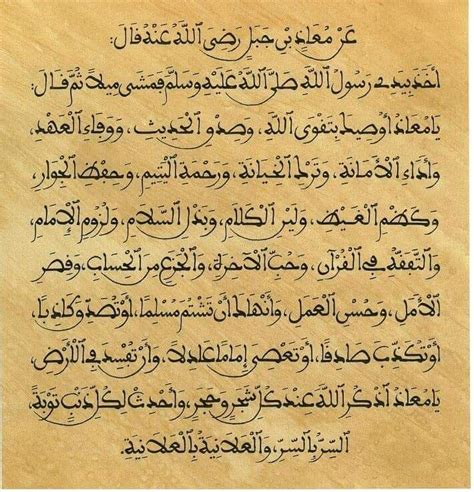 عن معاذ بن جبل رضى الله عنه قال:
أخذ بيدي رسول الله صلى الله عليه وسلم فمشى ميلا ثم قال:
يا معاذ أوصيك بتقوى الله، وصدق الحديث، ووفاء العهد،
وأداء الأمانة، وترك الخيانة، ورحمة اليتيم، وحفظ الجوار،
وكظم الغيظ، ولين الكلام، وبذل السلام، ولزوم الإمام،
والتفقه في القرآن، وحب الآخرة، والجزع من الحساب، وقصر
الأمل، وحسن العمل، وأنهاك أن تشتم مسلما، أو تصدق كاذبا،
أو تكذب صادقا، أو تعصي إماما عادلا، وأن تفسد في الأرض،
يا معاذ أذكر الله عند كل شجر وحجر، وأحدث لكل ذنب توبة،
السر بالسر، والعلانية بالعلانية.